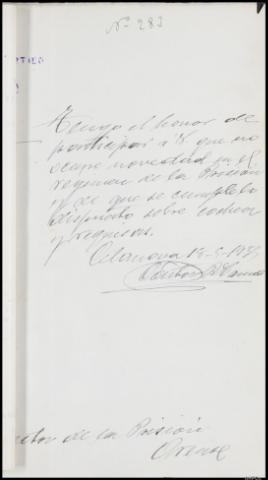 Nº 283
Tengo el honor de
participar á V. que no
ocupe novedad en el
regimen de la Prisión
y de que se cumple lo
dispuesto sobre cacheos
y requisas.
Celanova
de la Prisión
Orense